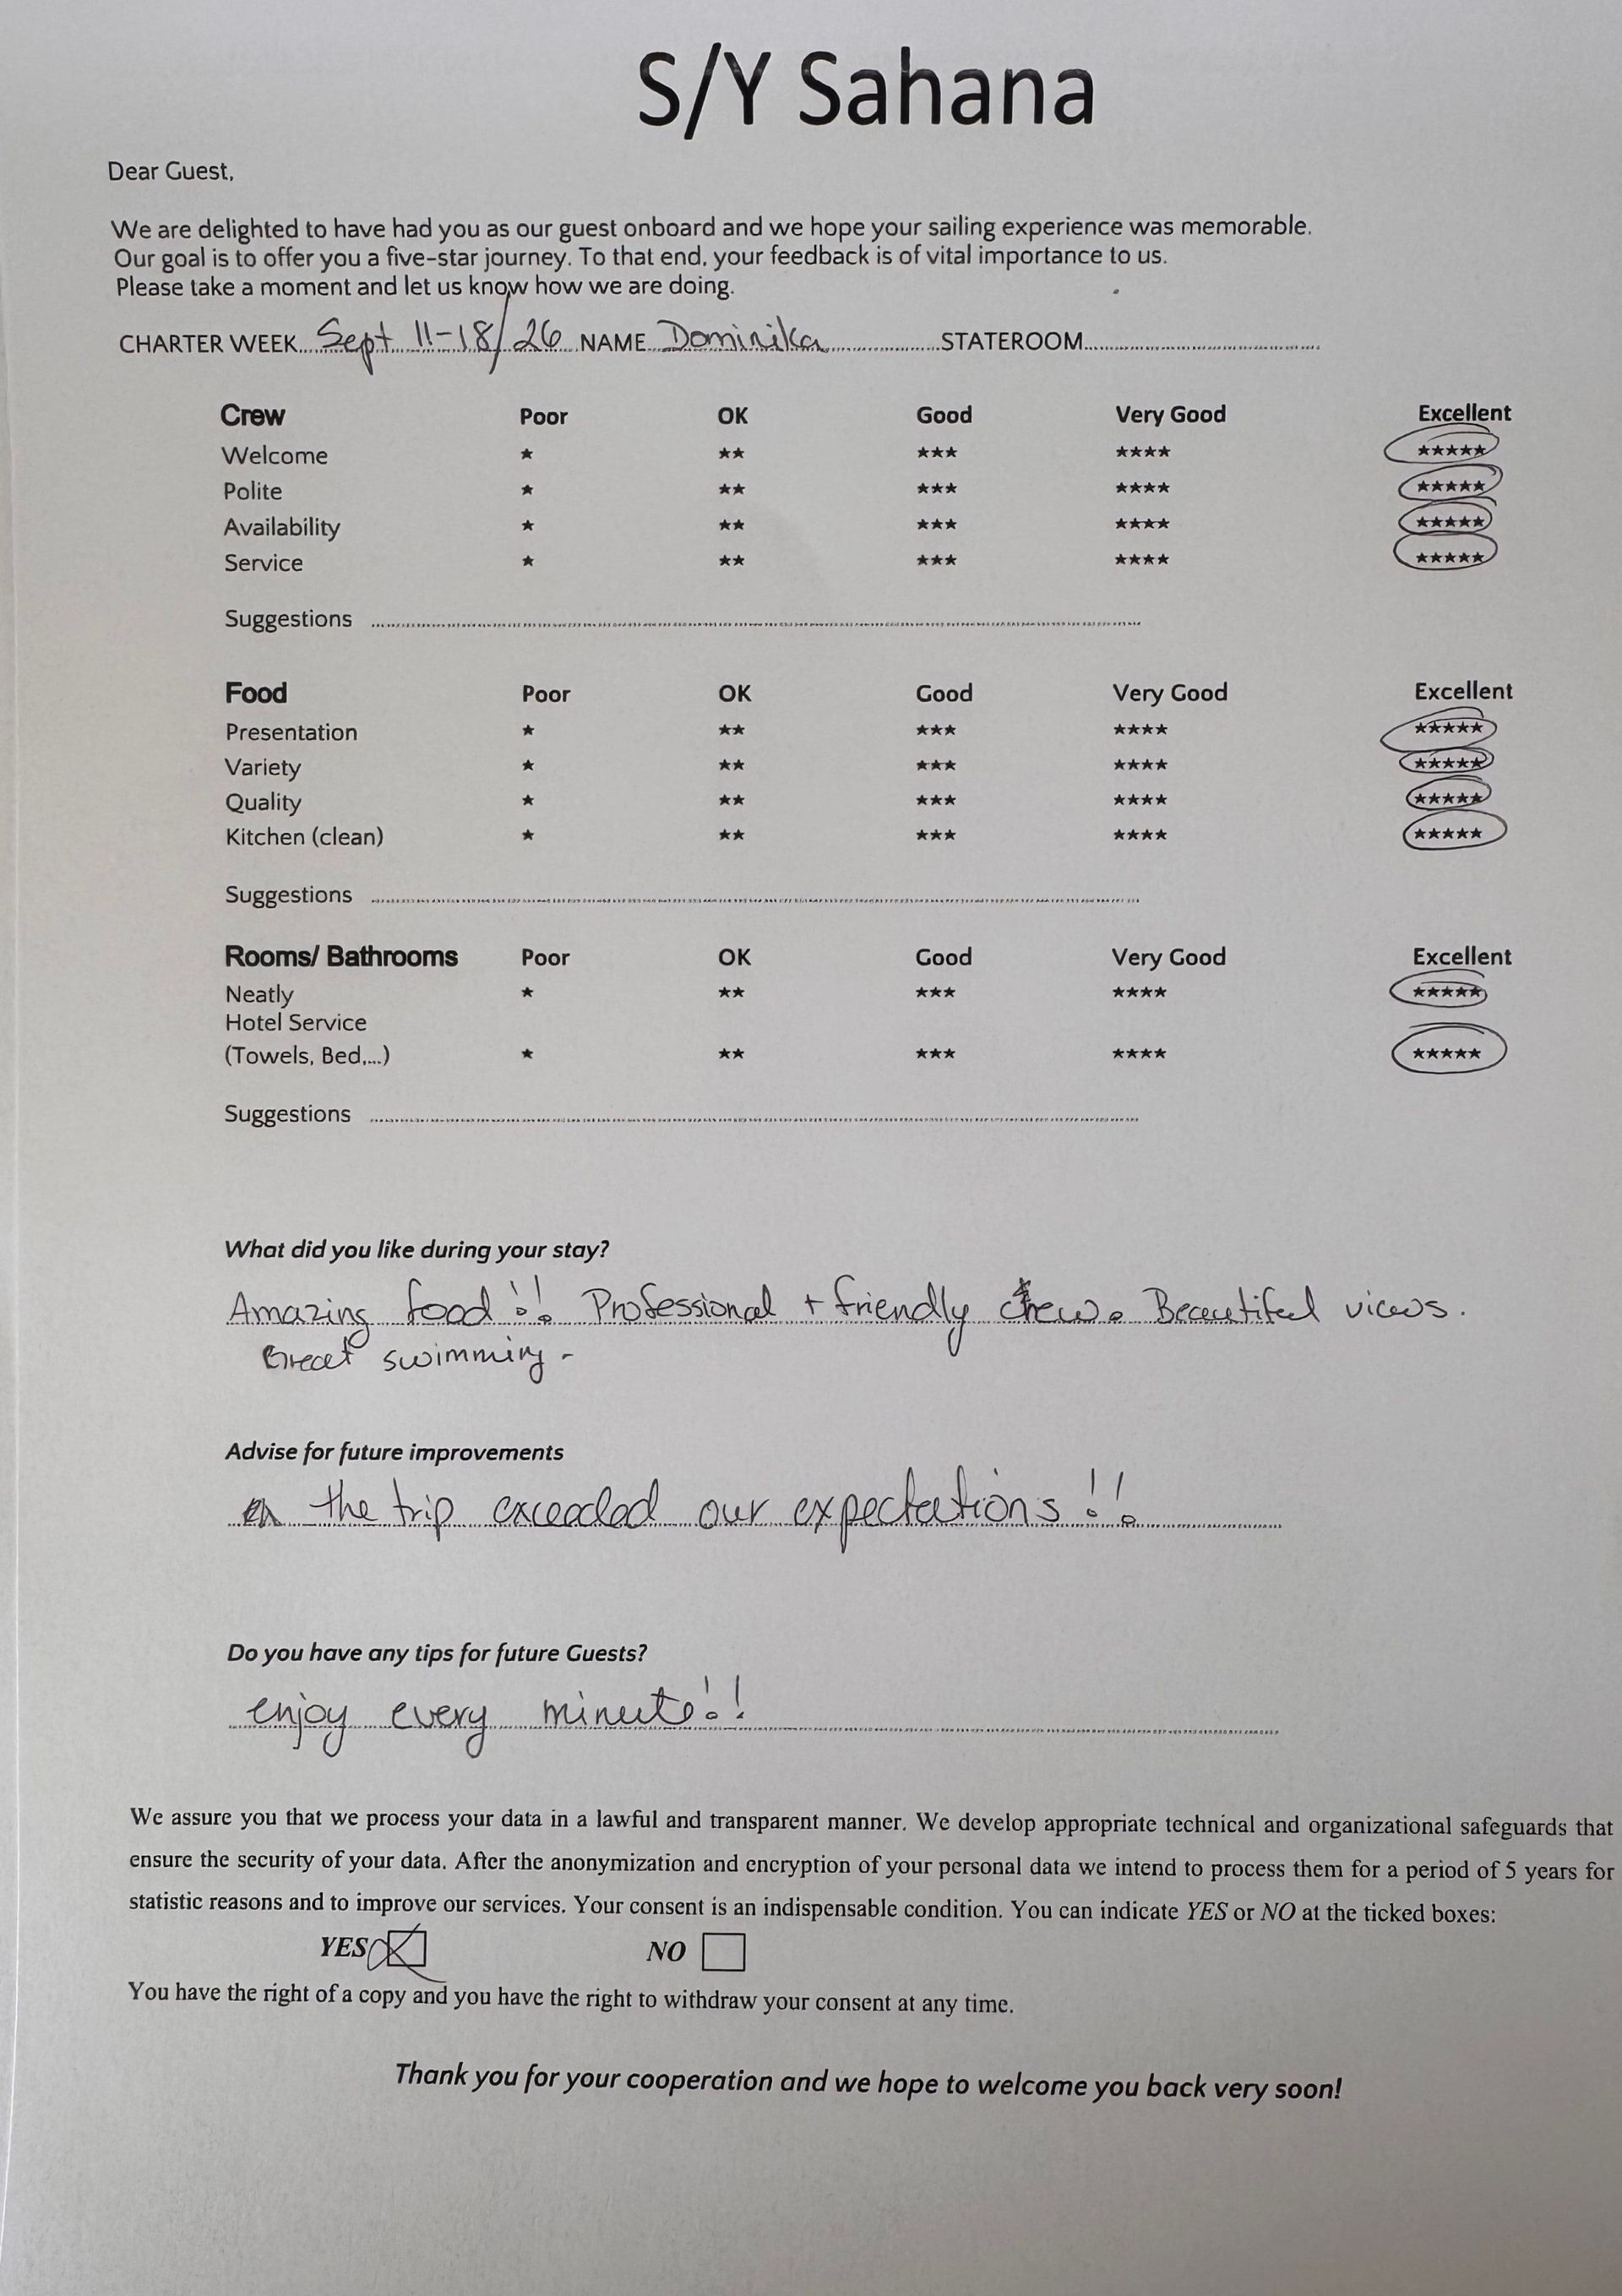 S/Y Sahana
Dear Guest,
We are delighted to have had you as our guest onboard and we hope your sailing experience was memorable.
Our goal is to offer you a five-star journey. To that end, your feedback is of vital importance to us.
Please take a moment and let us know how we are doing.
CHARTER WEEK Sept 11-18/26 NAME Dominika STATEROOM
Crew Poor OK Good Very Good Excellent
Welcome ★ ★★ ★★★ ★★★★ ★★★★★
Polite ★ ★★ ★★★ ★★★★ ★★★★★
Availability ★ ★★ ★★★ ★★★★ ★★★★★
Service ★ ★★ ★★★ ★★★★ ★★★★★
Suggestions
Food Poor OK Good Very Good Excellent
Presentation ★ ★★ ★★★ ★★★★ ★★★★★
Variety ★ ★★ ★★★ ★★★★ ★★★★★
Quality ★ ★★ ★★★ ★★★★ ★★★★★
Kitchen (clean) ★ ★★ ★★★ ★★★★ ★★★★★
Suggestions
Rooms/ Bathrooms Poor OK Good Very Good Excellent
Neatly ★ ★★ ★★★ ★★★★ ★★★★★
Hotel Service
(Towels, Bed,...) ★ ★★ ★★★ ★★★★ ★★★★★
Suggestions
What did you like during your stay?
Amazing food!! Professional + friendly crew. Beautiful views.
Great swimming -
Advise for future improvements
the trip exceeded our expectations!!
Do you have any tips for future Guests?
enjoy every minute!!
We assure you that we process your data in a lawful and transparent manner. We develop appropriate technical and organizational safeguards that
ensure the security of your data. After the anonymization and encryption of your personal data we intend to process them for a period of 5 years for
statistic reasons and to improve our services. Your consent is an indispensable condition. You can indicate YES or NO at the ticked boxes:
YES NO
You have the right of a copy and you have the right to withdraw your consent at any time.
Thank you for your cooperation and we hope to welcome you back very soon!